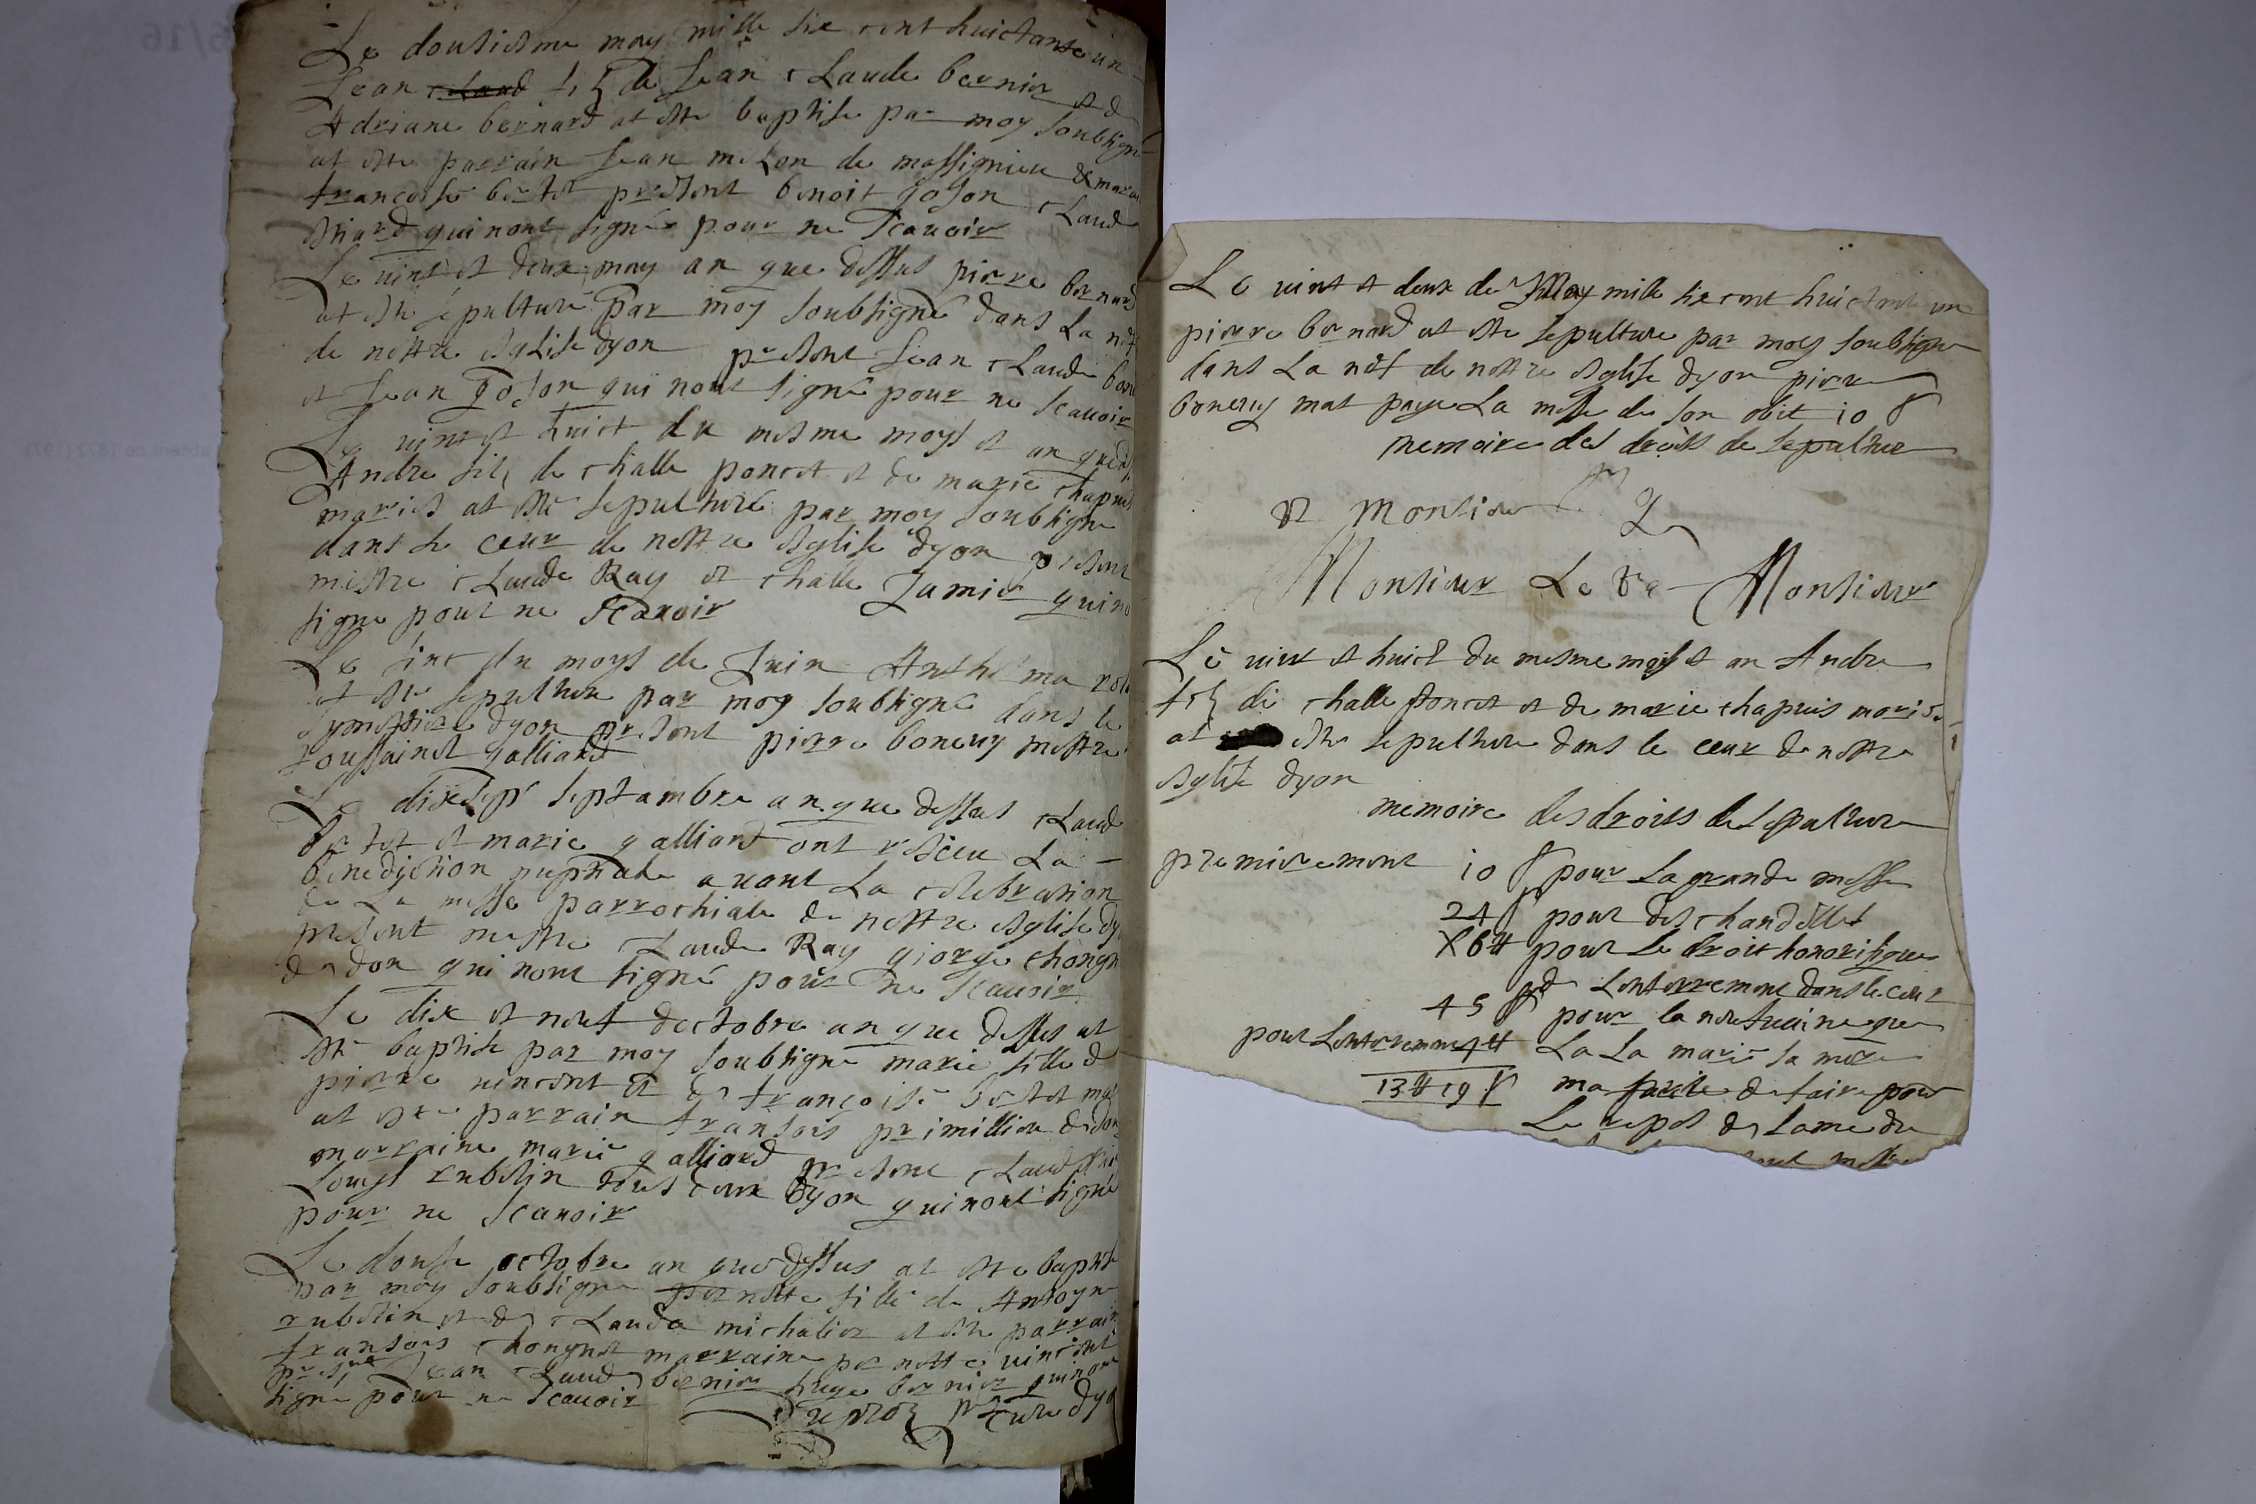 Le dousiesme may mille six cent huictante un
Jean Claud filz de Jean Claude bernier et de
Adriane bernard at este baptise par moy soubsigne
at este parrain Jean milon de massignieu & mar
francoise bertet present benoit goson Claude
qui nont signe pour ne scavoir
Le vint et deux may an que dessus pierre bernard
at este sepulturé par moy soubsigné dans La nef
de nostre esglise dyon present Jean Claude
et Jean goson qui nont signé pour ne scavoir
Le vint et huict du mesme moys et an que
Andre filz de Challe poncet et de marie chapuis
mariés at este sepulturé par moy soubsigne
dans le ceur de nostre esglise dyon present
mestre Claude Ray et Challe Jamier qui no
signe pour ne scavoir
Le du moys de Juin Anthelma
at este sepulture par moy soubsigné dans le
symestiere dyon present pierre bonery mestre
toussainct galliard
Le dixsept septambre an que dessus Claude
bertet et marie galliard ont resceu La
benediction nuptiale avant La celebration
de La messe parrochiale de nostre esglise dy
present mestre Claude Ray giorge chongn
dedon qui nont signé pour ne scavoir
Le dix et neuf doctobre an que dessus at
este baptise par moy soubsigne marie fille de
pierre vencent et de francoise bertet ma
at este parrain fransois primillieu dedon
marraine marie galliard present Claude
Louys rubestin tous ceux dyon qui nont signé
pour ne scavoir
Le douse octobre an que dessus at este baptise
par moy soubsigne pernette fille de Antoyne
rubestin et de Clauda michalier at este parrain
fransois chongnet marraine pernette vincent
present Jean Claude bernier huge bernier qui nont
signé pour ne scavoir
curé dyon
Le vint et deux de May mille six cent huictante un
pierre bernard at este sepulture par moy soubsigne
dans La nef de nostre esglise dyon pierre
bonery mat paye La messe de son obit 10 s
memoire des droits de sepulture
et Monsieur
Monsieur Le Monsieur
Le vint et huict du mesme moys et an Andre
filz de challe poncet et de marie chapuis mariés
at este sepulture dans le ceur de nostre
esglise dyon
memoire des droits de sepulture
premierement 10 s pour La grande messe
24 s pour des chandelles
6 tt pour Le droit honorifique
de Lenterrement dans le ceur
45 s pour la neufvaine que
pour Lenterrement 4 tt La La marie sa mere
13 tt 19 s ma de faire pour
Le repos de Lame du